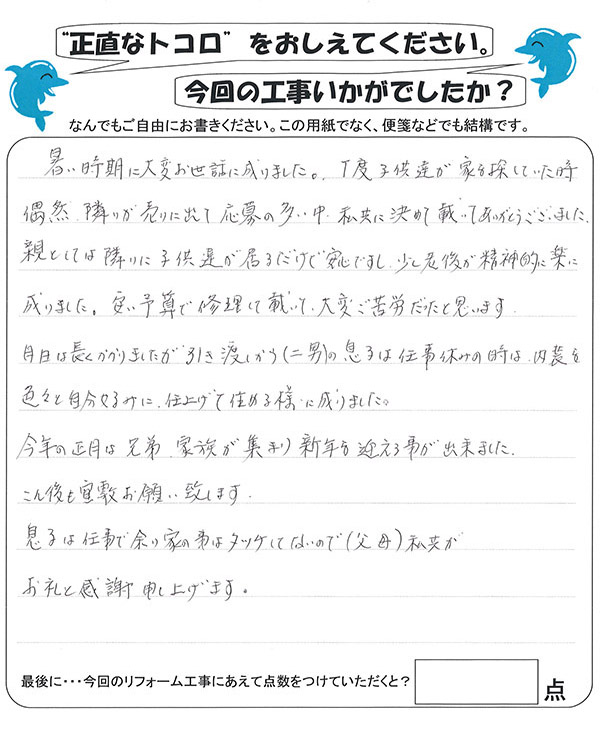 “正直なトコロ”をおしえてください。
今回の工事いかがでしたか？
なんでもご自由にお書きください。この用紙でなく、便箋などでも結構です。
暑い時期に大変お世話に成りました。丁度子供達が家を探していた時
偶然隣りが売りに出て応募の多い中私共に決めて載ってありがとうございました。
親としては隣りに子供達が居るだけで安心ですし、少し老後が精神的に楽に
成りました。安い予算で修理して載いて、大変ご苦労だったと思います
月日は長くかかりましたが引き渡しから(二男)の息子は仕事休みの時は、内装を
色々と自分好みに、仕上げて住める様に成りました。
今年の正月は兄弟、家族が集まり新年を迎える事が出来ました。
こん後も宜敷お願い致します
息子は仕事で余り家の事はタッチしてないので(父母)私共が
お礼と感謝申し上げます。
最後に・・・今回のリフォーム工事にあえて点数をつけていただくと？
点